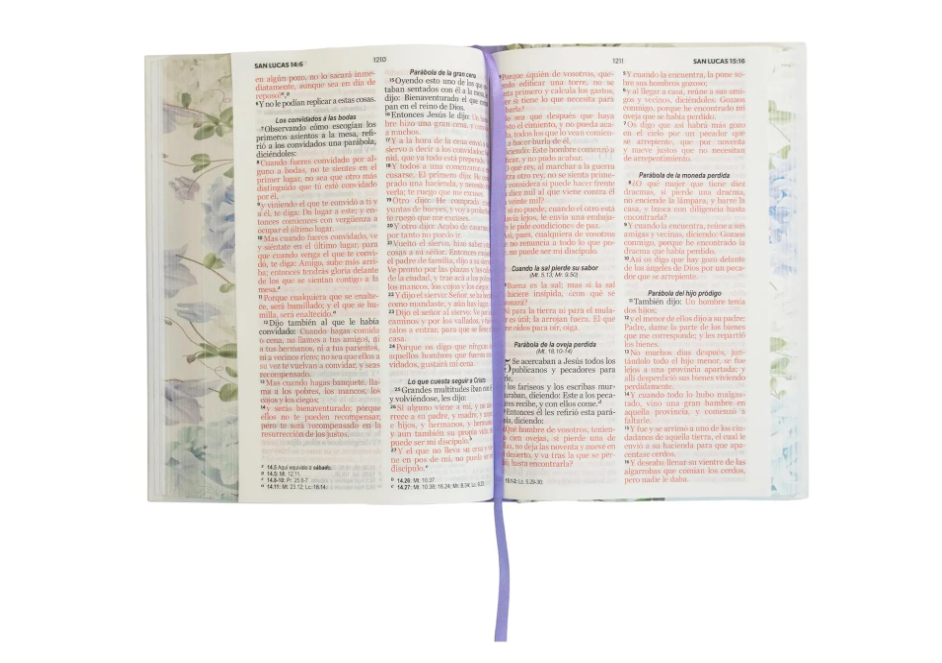 SAN LUCAS 14:6
1210
en algún pozo, no lo sacará inme-
diatamente, aunque sea en día de
reposo?
6 Y no le podían replicar a estas cosas.
Los convidados a las bodas
7 Observando cómo escogían los
primeros asientos a la mesa, refi-
rió a los convidados una parábola,
diciéndoles:
8 Cuando fueres convidado por al-
guno a bodas, no te sientes en el
primer lugar, no sea que otro más
distinguido que tú esté convidado
por él,
9 y viniendo el que te convidó a ti y
a él, te diga: Da lugar a éste; y en-
tonces comiences con vergüenza a
ocupar el último lugar.
10 Mas cuando fueres convidado, ve
y siéntate en el último lugar, para
que cuando venga el que te convi-
dó, te diga: Amigo, sube más arri-
ba; entonces tendrás gloria delante
de los que se sientan contigo a la
mesa.
11 Porque cualquiera que se enalte-
ce, será humillado; y el que se hu-
milla, será enaltecido.
12 Dijo también al que le había
convidado: Cuando hagas comida
o cena, no llames a tus amigos, ni
a tus hermanos, ni a tus parientes,
ni a vecinos ricos; no sea que ellos a
su vez te vuelvan a convidar, y seas
recompensado.
13 Mas cuando hagas banquete, lla-
ma a los pobres, los mancos, los
cojos y los ciegos;
14 y serás bienaventurado; porque
ellos no te pueden recompensar,
pero te será recompensado en la
resurrección de los justos.
14.5 Aquí equivale a sábado.
14.5: Mt. 12.11.
14.8-10: Pr. 25.6-7.
14.11: Mt. 23.12; Lc. 18.14.
Parábola de la gran cena
15 Oyendo esto uno de los que
taban sentados con él a la mesa,
dijo: Bienaventurado el que
pan en el reino de Dios.
16 Entonces Jesús le dijo: Un
bre hizo una gran cena, y
a muchos.
17 Y a la hora de la cena envió
siervo a decir a los convidados
nid, que ya todo está preparado.
18 Y todos a una comenzaron a
cusarse. El primero dijo: He
prado una hacienda, y necesito
verla; te ruego que me excuses.
19 Otro dijo: He comprado
yuntas de bueyes, y voy a
te ruego que me excuses.
20 Y otro dijo: Acabo de casarme
por tanto no puedo ir.
21 Vuelto el siervo, hizo saber
cosas a su señor. Entonces
el padre de familia, dijo a su
Ve pronto por las plazas y las
de la ciudad, y trae acá a los
los mancos, los cojos y los ciegos.
22 Y dijo el siervo: Señor, se ha
como mandaste, y aún hay lugar.
23 Dijo el señor al siervo: Ve
caminos y por los vallados, y
calos a entrar, para que se
casa.
24 Porque os digo que ninguno
aquellos hombres que fueron
vidados, gustará mi cena.
Lo que cuesta seguir a Cristo
25 Grandes multitudes iban con
y volviéndose, les dijo:
26 Si alguno viene a mí, y no
rrece a su padre, y madre, y
e hijos, y hermanos, y hermanas,
y aun también su propia vida,
puede ser mi discípulo.
27 Y el que no lleva su cruz y
ne en pos de mí, no puede ser
discípulo.
14.26: Mt. 10.37.
14.27: Mt. 10.38; 16.24; Mr. 8.34; Lc. 9.23.
1211
SAN LUCAS 15:16
Porque ¿quién de vosotros, que-
edificar una torre, no se
primero y calcula los gastos,
si tiene lo que necesita para
sea que después que haya
el cimiento, y no pueda aca-
todos los que lo vean comien-
a hacer burla de él,
diciendo: Este hombre comenzó a
y no pudo acabar.
qué rey, al marchar a la guerra
otro rey, no se sienta prime-
considera si puede hacer frente
diez mil al que viene contra él
veinte mil?
si no puede, cuando el otro está
lejos, le envía una embaja-
le pide condiciones de paz.
pues, cualquiera de vosotros
no renuncia a todo lo que po-
no puede ser mi discípulo.
Cuando la sal pierde su sabor
(Mt. 5.13; Mr. 9.50)
Buena es la sal; mas si la sal
hiciere insípida, ¿con qué se
Ni para la tierra ni para el mula-
es útil; la arrojan fuera. El que
oídos para oír, oiga.
Parábola de la oveja perdida
(Mt. 18.10-14)
Se acercaban a Jesús todos los
publicanos y pecadores para
los fariseos y los escribas mur-
muraban, diciendo: Este a los peca-
recibe, y con ellos come.
Entonces él les refirió esta pará-
diciendo:
Qué hombre de vosotros, tenien-
cien ovejas, si pierde una de
no deja las noventa y nueve en
desierto, y va tras la que se per-
hasta encontrarla?
15.1-2: Lc. 5.29-30.
5 Y cuando la encuentra, la pone so-
bre sus hombros gozoso;
6 y al llegar a casa, reúne a sus ami-
gos y vecinos, diciéndoles: Gozaos
conmigo, porque he encontrado mi
oveja que se había perdido.
7 Os digo que así habrá más gozo
en el cielo por un pecador que
se arrepiente, que por noventa
y nueve justos que no necesitan
de arrepentimiento.
Parábola de la moneda perdida
8 ¿O qué mujer que tiene diez
dracmas, si pierde una dracma,
no enciende la lámpara, y barre la
casa, y busca con diligencia hasta
encontrarla?
9 Y cuando la encuentra, reúne a sus
amigas y vecinas, diciendo: Gozaos
conmigo, porque he encontrado la
dracma que había perdido.
10 Así os digo que hay gozo delante
de los ángeles de Dios por un peca-
dor que se arrepiente.
Parábola del hijo pródigo
11 También dijo: Un hombre tenía
dos hijos;
12 y el menor de ellos dijo a su padre:
Padre, dame la parte de los bienes
que me corresponde; y les repartió
los bienes.
13 No muchos días después, jun-
tándolo todo el hijo menor, se fue
lejos a una provincia apartada; y
allí desperdició sus bienes viviendo
perdidamente.
14 Y cuando todo lo hubo malgas-
tado, vino una gran hambre en
aquella provincia, y comenzó a
faltarle.
15 Y fue y se arrimó a uno de los ciu-
dadanos de aquella tierra, el cual le
envió a su hacienda para que apa-
centase cerdos.
16 Y deseaba llenar su vientre de las
algarrobas que comían los cerdos,
pero nadie le daba.